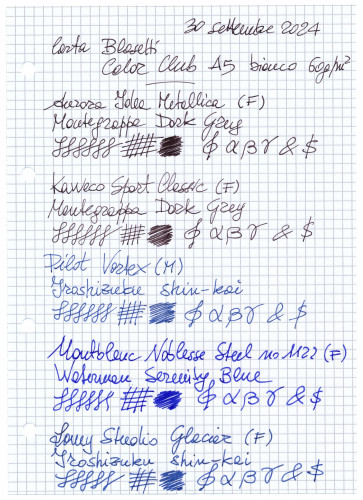 30 settembre 2024
Carta Blasetti
Color Club A5 bianco 60g/m²
Aurora Idea Metallica (F)
Montegrappa Dark Grey
∮ α β γ & $
Kaweco Sport Classic (F)
Montegrappa Dark Grey
∮ α β γ & $
Pilot Vortex (M)
Iroshizuku shin-kai
∮ α β γ & $
Montblanc Noblesse Steel no 1122 (F)
Waterman Serenity Blue
∮ α β γ & $
Lamy Studio Glacier (F)
Iroshizuku shin-kai
∮ α β γ & $